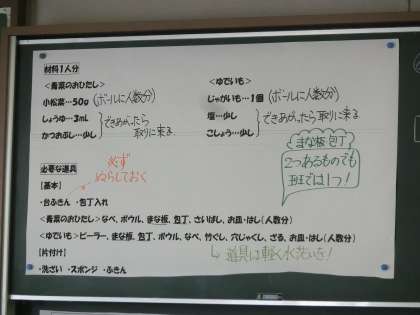 材料1人分
<青菜のおひたし>
小松菜…50g (ボールに人数分)
しょうゆ…3mL
かつおぶし…少し
できあがったら取りに来る
<ゆでいも>
じゃがいも…1個 (ボールに人数分)
塩…少し
こしょう…少し
できあがったら取りに来る
まな板 包丁
2つあるものでも
班では1つ!
必要な道具
必ず
ぬらしておく
[基本]
・台ふきん ・包丁入れ
<青菜のおひたし>なべ、ボウル、まな板、包丁、さいばし、お皿・はし(人数分)
<ゆでいも>ピーラー、まな板、包丁、ボウル、なべ、竹ぐし、穴じゃくし、ざる、お皿・はし(人数分)
道具は軽く水洗いを!
[片付け]
・洗ざい ・スポンジ ・ふきん